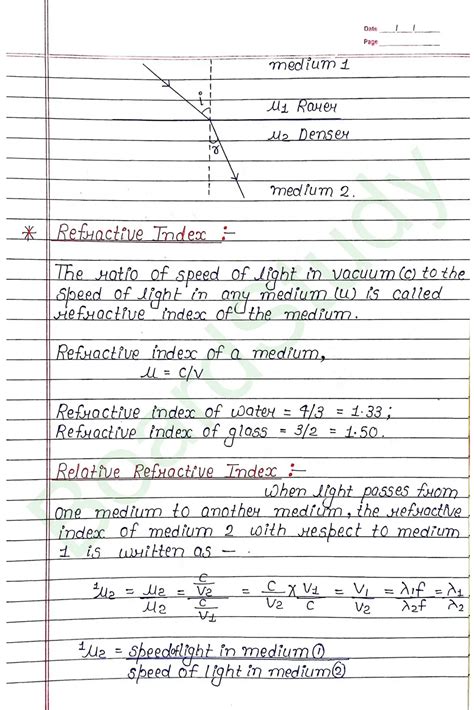 Date / /
Page
medium 1
i
μ1 Rarer
μ2 Denser
r
medium 2.
* Refractive Index :-
The ratio of speed of light in vacuum (c) to the
speed of light in any medium (u) is called
refractive index of the medium.
Refractive index of a medium,
μ = c/v
Refractive index of water = 4/3 = 1.33;
Refractive index of glass = 3/2 = 1.50.
Relative Refractive Index :-
When light passes from
one medium to another medium, the refractive
index of medium 2 with respect to medium
1 is written as -
¹μ2 = μ2/μ2 = (c/V2)/(c/V1) = C/V2 × V1/C = V1/V2 = λ1f/λ2f = λ1/λ2
¹μ2 = speed of light in medium ①
speed of light in medium ②
BoardStudy